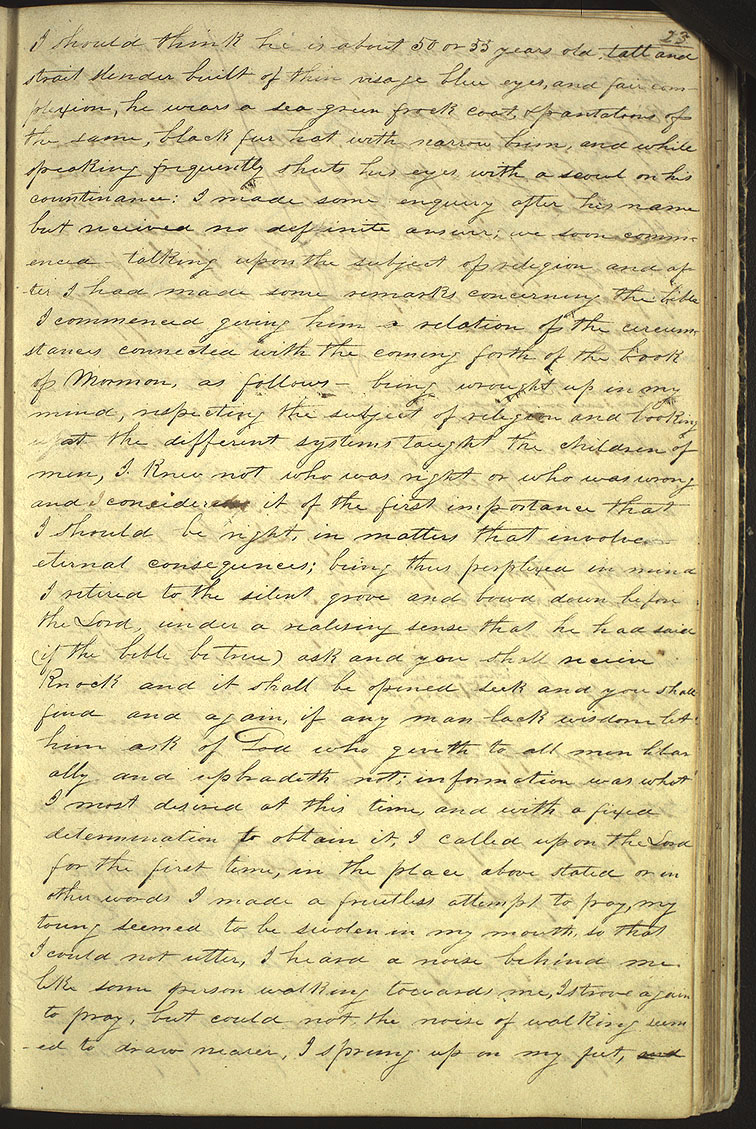 23
I should think he is about 50 or 55 years old, tall and
strait slender built of thin visage blue eyes, and fair com-
plexion, he wears a sea green frock coat, & pantaloons of
the same, black fur hat with narrow brim, and while
speaking frequently shuts his eyes, with a scowl on his
countinance; I made some enquiry after his name
but received no definite answer; we soon comm-
enced talking upon the subject of religion and af-
ter I had made some remarks concerning the bible
I commenced giving him a relation of the circum-
stances connected with the coming forth of the book
of Mormon, as follows— being wrought up in my
mind, respecting the subject of religion and looking
at the different systems taught the children of
men, I knew not who was right or who was wrong
and I considered it of the first importance that
I should be right, in matters that involve
eternal consequences; being thus perplexed in mind
I retired to the silent grove and bowd down before
the Lord, under a realising sense that he had said
(if the bible be true) ask and you shall receive
knock and it shall be opened seek and you shall
find and again, if any man lack wisdom let
him ask of God who giveth to all men libar
ally and upbradeth not; information was what
I most desired at this time, and with a fixed
determination to obtain it, I called upon the Lord
for the first time, in the place above stated or in
other words I made a fruitless attempt to pray, my
toung seemed to be swolen in my mouth, so that
I could not utter, I heard a noise behind me
like some person walking towards me, I strove again
to pray, but could not, the noise of walking seem
-ed to draw nearer, I sprung up on my feet, and